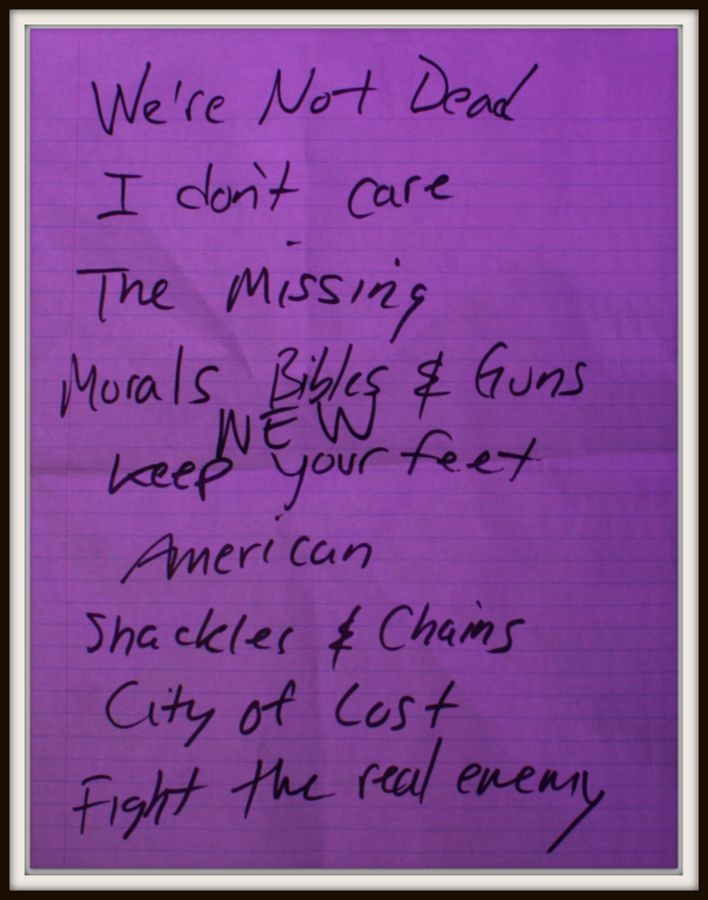 We're Not Dead
I don't care
The Missing
Morals Bibles & Guns
NEW
keep your feet
American
Shackles & Chains
City of Lost
Fight the real enemy